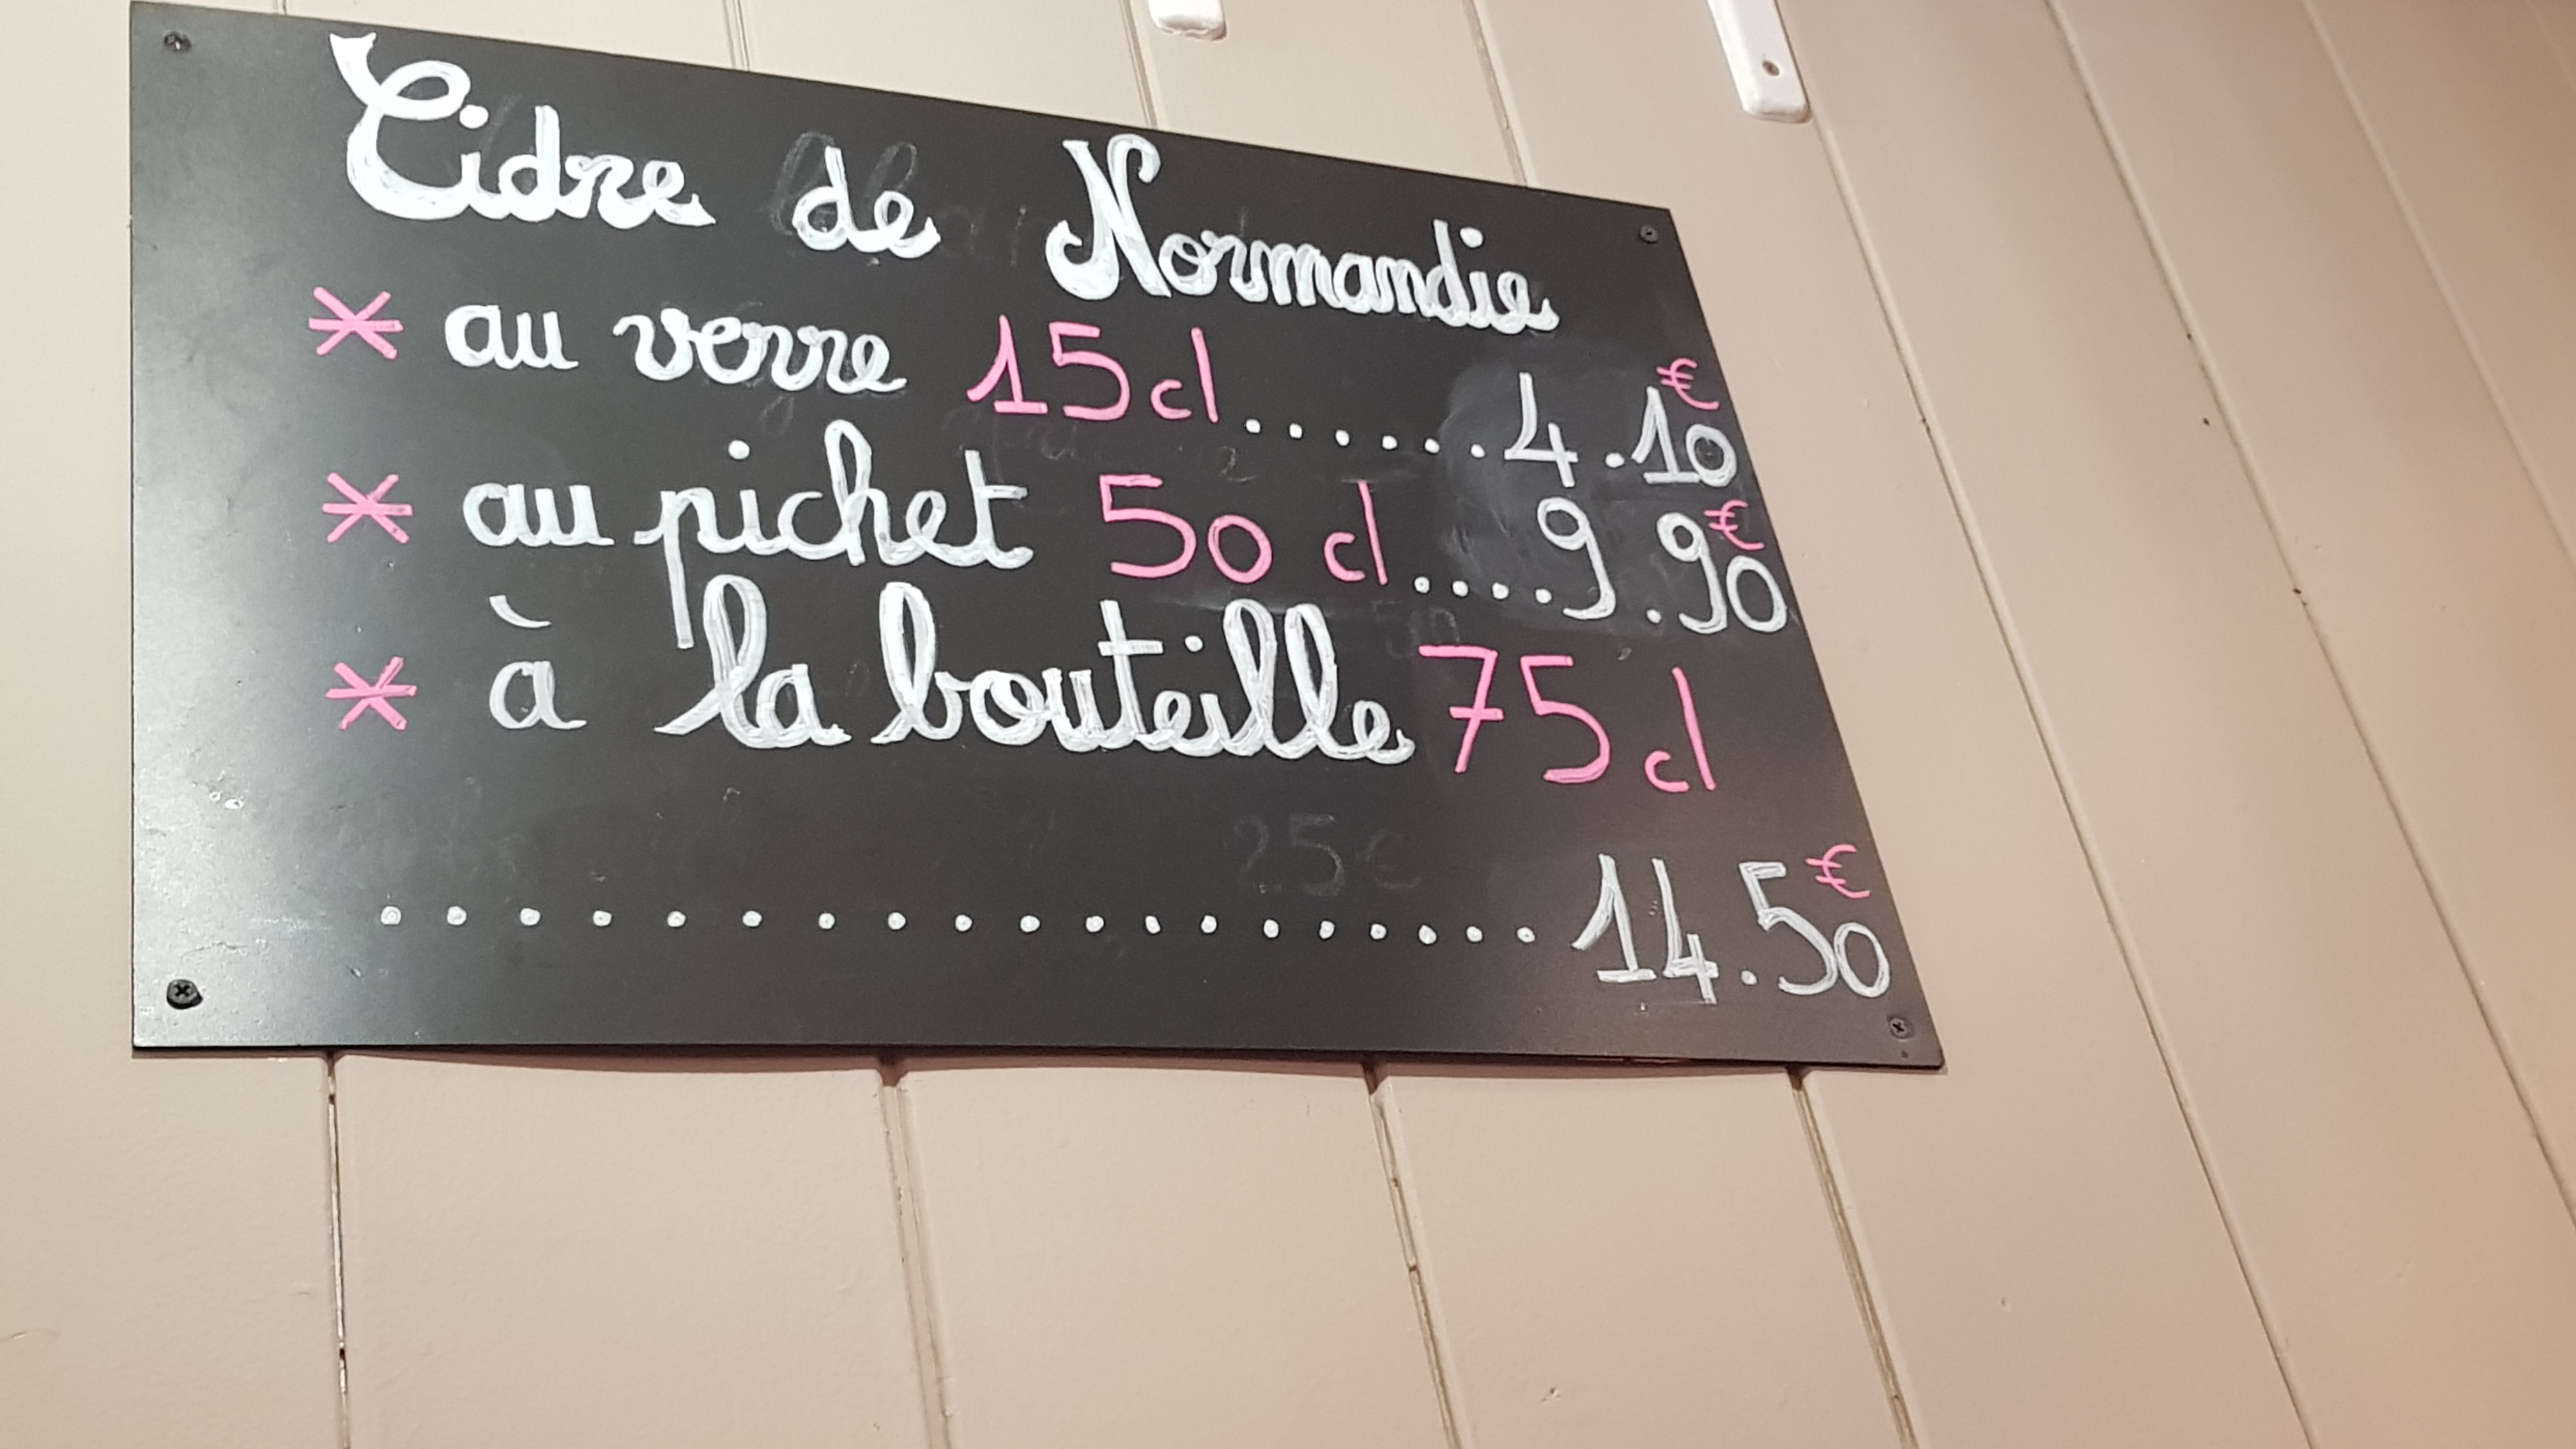 Cidre de Normandie
* au verre 15cl.......4.10€
* au pichet 50 cl.....9.90€
* à la bouteille 75cl
...................14.50€